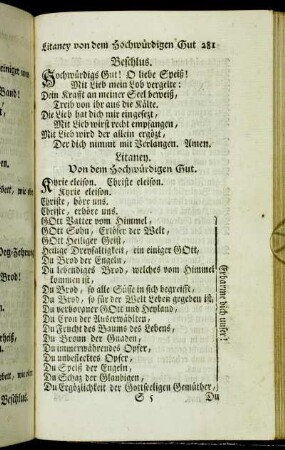 Litaney von dem Hochwürdigen Gut 281
Beschlus.
Hochwürdigs Gut! O liebe Speiß!
Mit Lieb mein Lob vergelte:
Dein Krafft an meiner Seel beweiß,
Treib von ihr aus die Kälte.
Die Lieb hat dich mir eingesetzt,
Mit Lieb wirst recht empfangen,
Mit Lieb wird der allein ergötzt,
Der dich nimmt mit Verlangen. Amen.
Litaney.
Von dem Hochwürdigen Gut.
Kyrie eleison. Christe eleison.
Kyrie eleison.
Christe, höre uns.
Christe, erhöre uns.
GOtt Vatter vom Himmel,
GOtt Sohn, Erlöser der Welt,
GOtt Heiliger Geist,
Heilige Dreyfaltigkeit, ein einiger GOtt,
Du Brod der Engeln,
Du lebendiges Brod, welches vom Himmel
kommen ist,
Du Brod, so alle Süsse in sich begreifft,
Du Brod, so für der Welt Leben gegeben ist,
Du verborgner GOtt und Heyland,
Du Cron der Auserwählten,
Du Frucht des Baums des Lebens,
Du Bronn der Gnaden,
Du immerwährendes Opfer,
Du unbeflecktes Opfer,
Du Speiß der Engeln,
Du Schatz der Glaubigen,
Du Ergözlichkeit der Gottseeligen Gemüther,
Erbarme dich unser!
S 5 Du